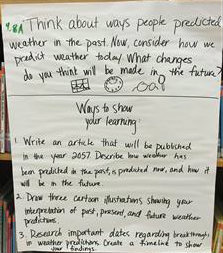 4.8A Think about ways people predicted
weather in the past. Now, consider how we
predict weather today. What changes
do you think will be made in the future?
Ways to show
your learning:
1. Write an article that will be published
in the year 2057. Describe how weather has
been predicted in the past, is predicted now, and how it
will be in the future.
2. Draw three cartoon illustrations showing your
interpretation of past, present, and future weather
predictions.
3. Research important dates regarding breakthroughs
in weather predictions. Create a timeline to show
your findings.